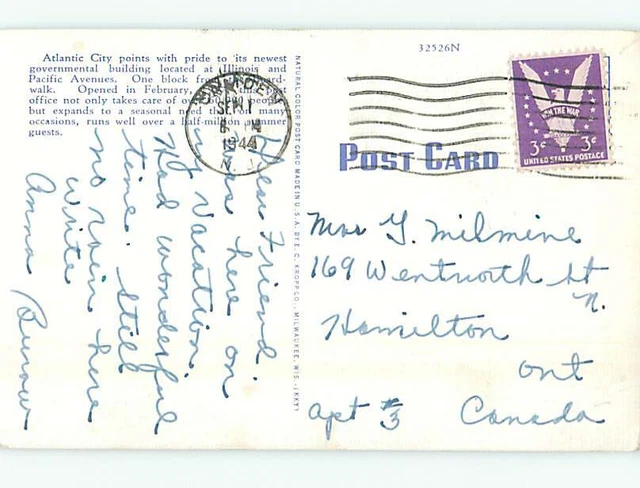 Atlantic City points with pride to its newest
governmental building located at Illinois and
Pacific Avenues. One block from the
walk. Opened in February,
office not only takes care of
but expands to a seasonal need many
occasions, runs well over a half-million summer
guests.
CAMDEN
SEP 1
1944
N. J.
NATURAL COLOR POST CARD MADE IN U.S.A. BY E. C. KROPP CO., MILWAUKEE, WIS.
32526N
WIN THE WAR
3¢ 3¢
UNITED STATES POSTAGE
POST CARD
Dear Friend.
was here on
my vacation
Had wonderful
time. Still
no rain here
write
Anna Burow
Mrs G. Milmine
169 Wentworth St
N.
Hamilton
Ont
Apt #3 Canada